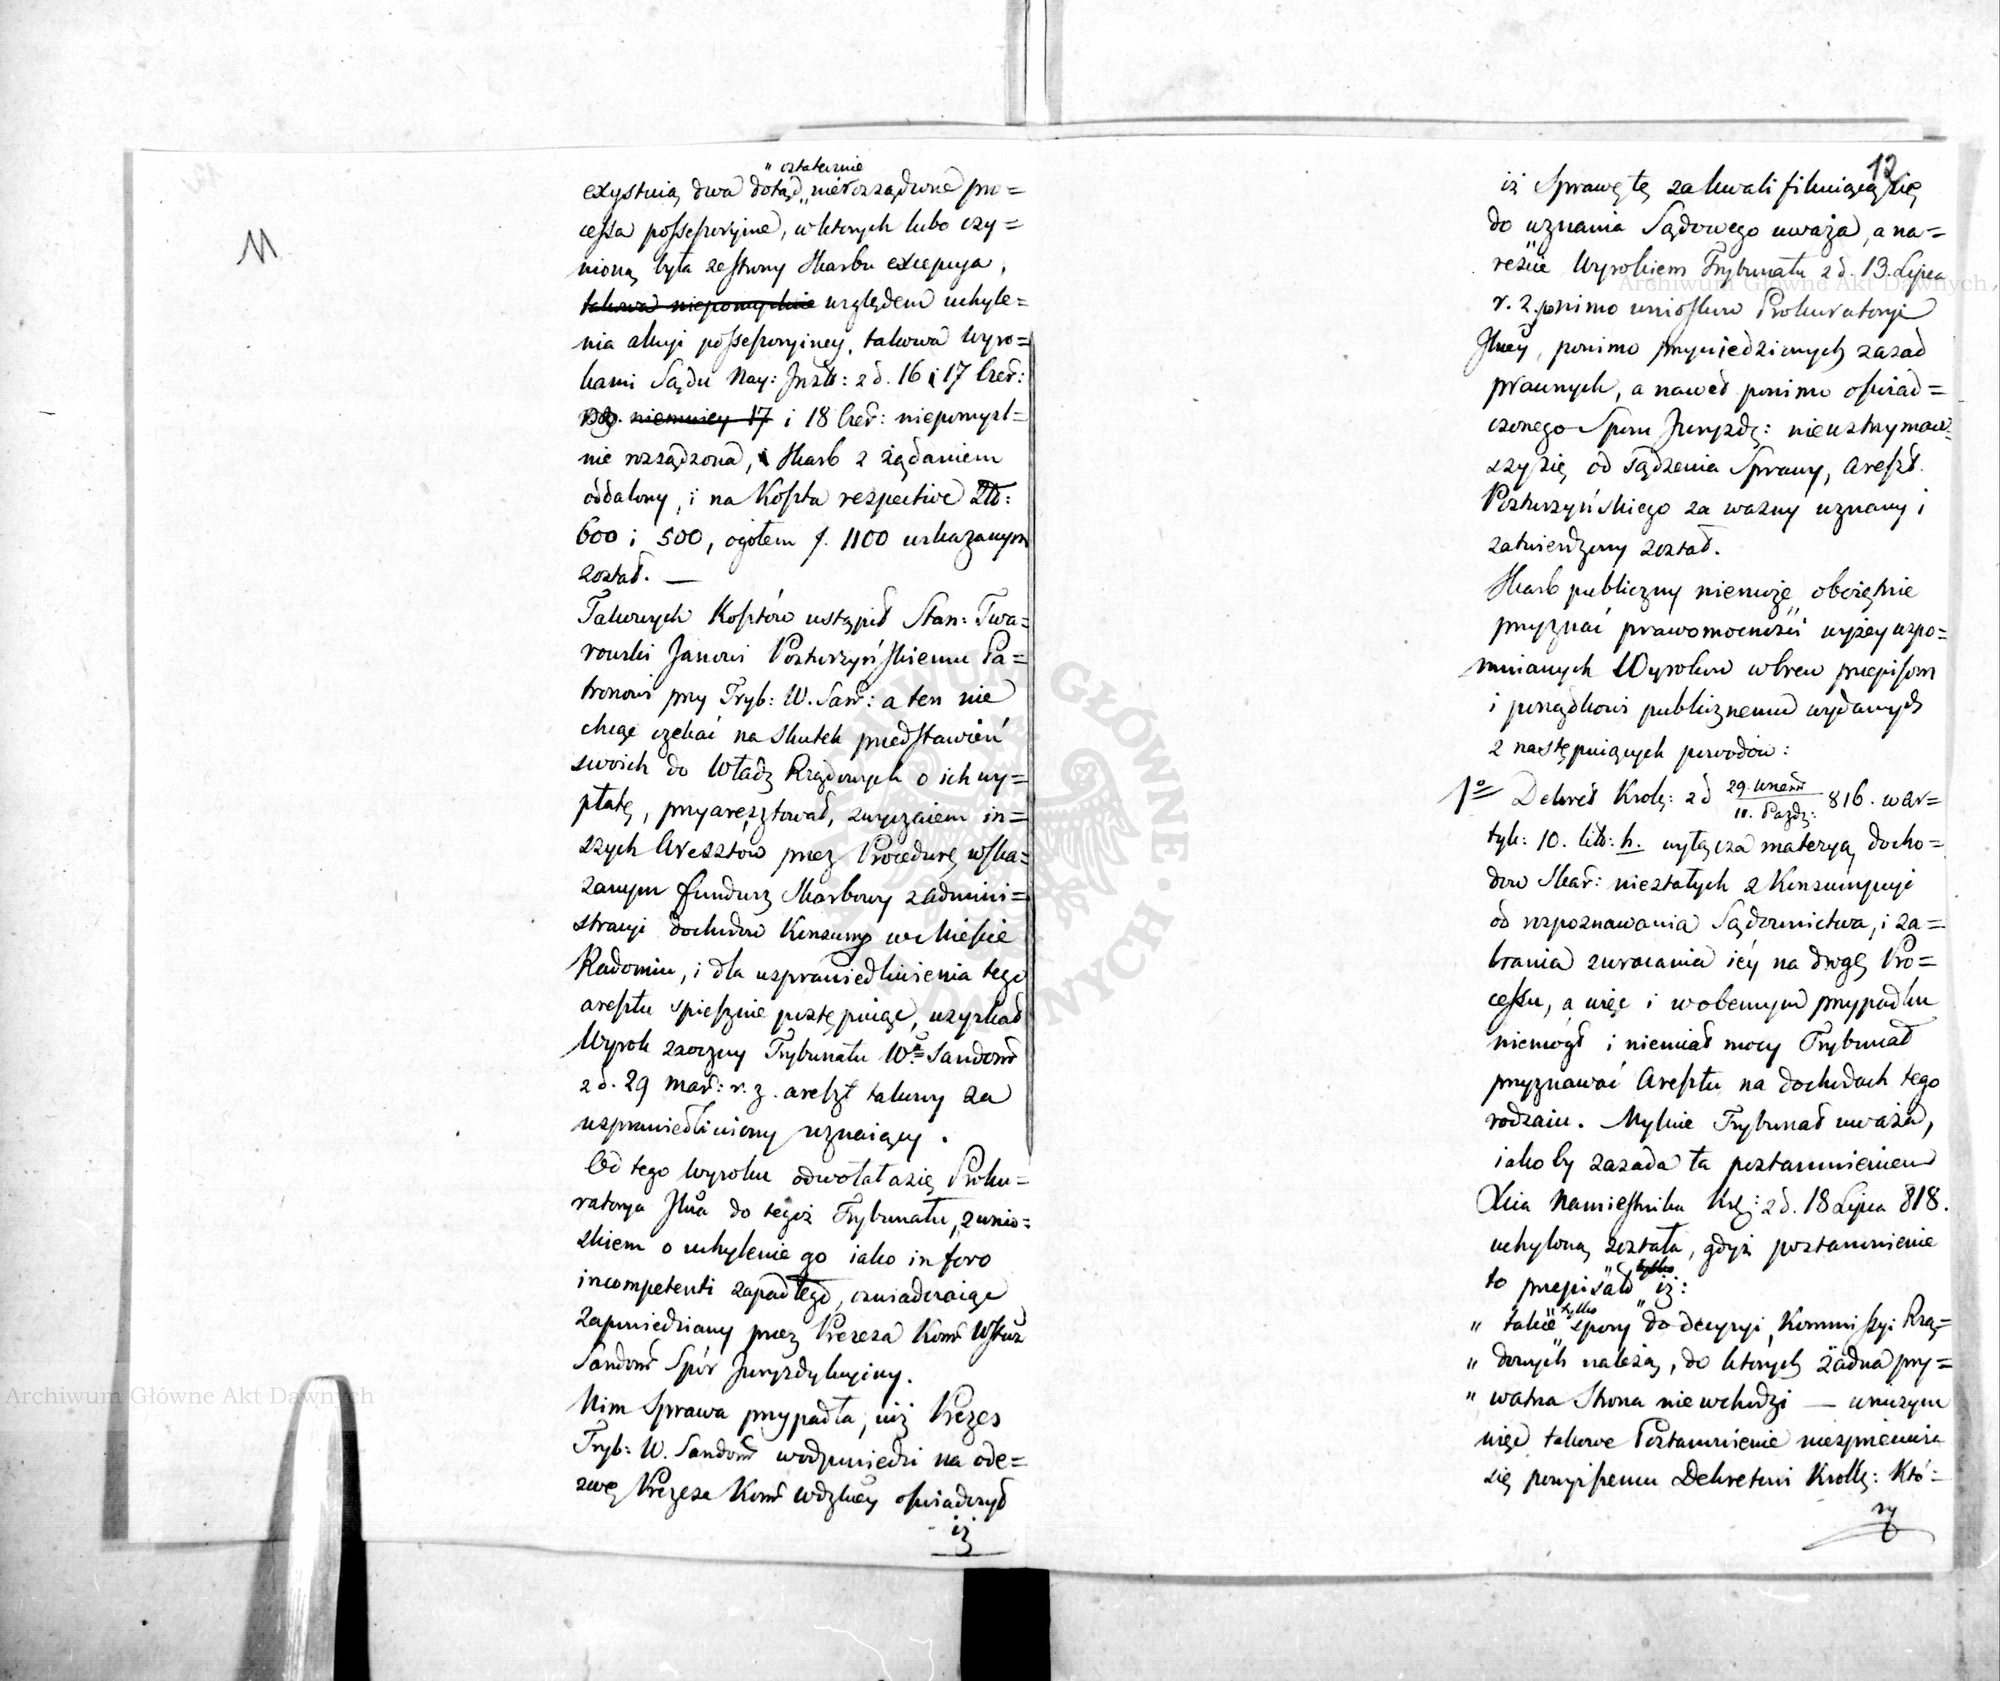 M
" ostatecznie
exystuią dwa dotąd „ nierozsądzone pro=
cessa possessoryjne, w których lubo czy=
nioną była ze strony Skarbu excepcya,
takowa niepomyślnie względem uchyle=
nia akcyi possessoryiney, takowa wyro=
kami Sądu Nay: Inst: z d. 16 i 17 Czer:
niemniey 17 i 18 Czer: niepomyśl=
nie rozsądzona, i Skarb z żądaniem
oddalony, i na Koszta respective Złt:
600 i 500, ogółem f. 1100 wskazanym
został. —
Takowych Kosztów ustąpił Stan: Twa=
rowski Janowi Poszturzyńskiemu Pa=
tronowi przy Tryb: W. San: a ten nie
chcąc czekać na skutek przedstawień
swoich do Władz Rządowych o ich wy=
płatę, przyaresztował, zwyczaiem in=
szych Aresztów przez Procedurę wska=
zanym fundusz Skarbowy z admini=
stracyi dochodów Konsump w Mieście
Radomiu, i dla usprawiedliwienia tego
aresztu spiesznie postępuiąc, uzyskał
Wyrok zaoczny Trybunału Wa Sandom
z d. 29 Mar: r. z. areszt takowy za
usprawiedliwiony uznaiący.
Od tego Wyroku odwołała się Proku=
ratorya Jlna do tegoż Trybunału, z wnio=
skiem o uchylenie go iako in foro
incompetenti zapadłego, oświadczaiąc
zapowiedziany przez Prezesa Kom Wsk
Sandom Spór Juryzdykcyiny.
Nim Sprawa przypadła, iuż Prezes
Tryb: W. Sandom w odpowiedzi na ode=
zwę Prezesa Kom Wdzkiey oświadczył
iż
12
iż Sprawę tę za kwalifikuiącą się
do uznania Sądowego uważa, a na=
reście Wyrokiem Trybunału z d. 13. Lipca
r. z. pomimo wniosków Prokuratoryi
Jlney, pomimo przywiedzionych zasad
prawnych, a nawet pomimo oświad=
czonego Sporu Juryzdy: nie wstrzymaw=
szy się od sądzenia Sprawy, Areszt
Poszturzyńskiego za ważny uznany i
zatwierdzony został.
Skarb publiczny niemoże obojętnie
przyznać prawomocność wyżey wspo=
mnianych Wyroków wbrew przepisom
i porządkowi publicznemu wydanych
z następuiących powodów:
1o Dekret Krole: z d 29. Wrześ / 11. Paźdz: 816. w ar=
tyk: 10. lit: h. wyłącza materyą docho=
dów Skar: niestałych z Konsumpcyi
od rozpoznawania Sądownictwa, i za=
brania zwracania iéy na drogę Pro=
cessu, a więc i w obecnym przypadku
niemógł i niemiał mocy Trybunał
przyznawać Aresztu na dochodach tego
rodzaiu. Mylnie Trybunał uważa,
iakoby zasada ta postanowieniem
Xcia Namiestnika Król: z d. 18 Lipca 818.
uchyloną została, gdyż postanowienie
to przepisało „ iż:
tylko
" takie spory do decyzyi Kommissyi Rzą=
" dowych należą, do których żadna pry=
" watna Strona nie wchodzi — w niczym
więc takowe Postanowienie nie sprzeciwia
się powyższemu Dekretowi Krolle: Któ=
ry
Archiwum Główne Akt Dawnych
Archiwum Główne Akt Dawnych